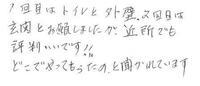 1回目はトイレと外壁、2回目は
玄関とお願いしましたが、近所でも
評判いいです!!
どこでやってもらったの、と聞かれています